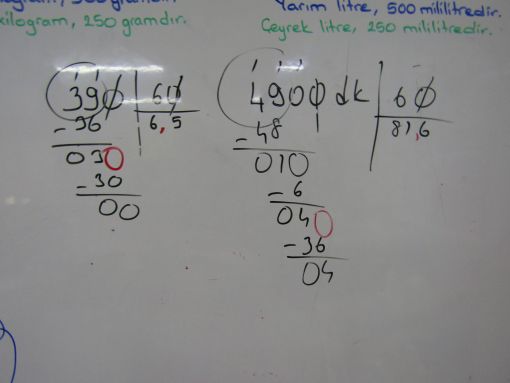 Yarım litre, 500 mililitredir.
kilogram, 250 gramdır.
Çeyrek litre, 250 mililitredir.
390 60
6,5
- 36
030
- 30
00
4900 dk 60
81,6
- 48
010
- 6
040
- 36
04